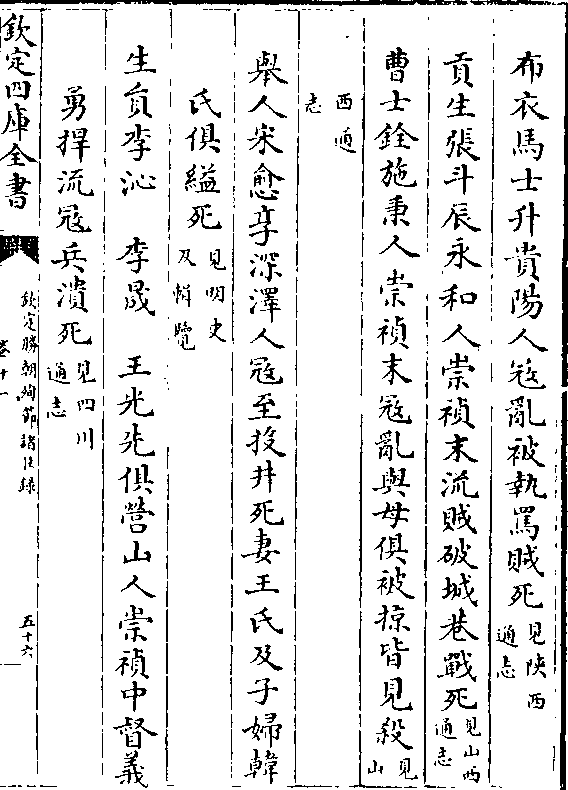 布衣馬士升貴陽人寇亂被執罵賊死見陜西通志
貢生張斗辰永和人崇禎末流賊破城巷戰死見山西通志
曹士銓施秉人崇禎末寇亂與母俱被掠皆見殺見山
西通志
舉人宋愈亨深澤人寇至投井死妻王氏及子婦韓
氏俱縊死見明史及輯覽
生員李沁　李晟　王光先俱營山人崇禎中督義
勇捍流寇兵潰死見四川通志
欽定四庫全書
欽定勝朝殉節諸臣錄
卷十一
五十六